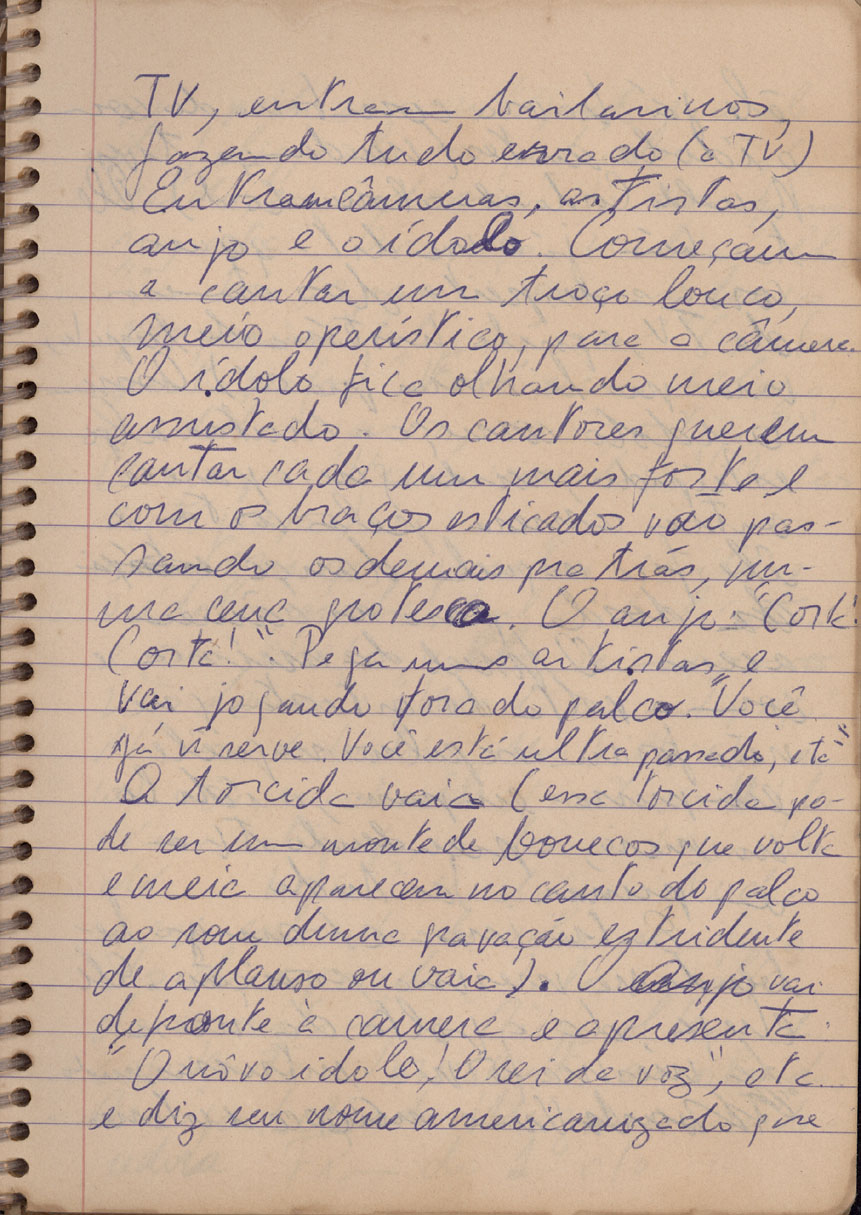 TV, entram bailarinos,
fazendo tudo errado (a TV)
Entram câmeras, artistas,
anjo e o ídolo. Começam
a cantar um troço louco,
meio operístico, para a câmera.
O ídolo fica olhando meio
assustado. Os cantores querem
cantar cada um mais forte e
com os braços esticados vão pas-
sando os demais pra trás, nu-
ma cena grotesca. O anjo: "Corta!
Corta!". Pega uns artistas e
vai jogando fora do palco. "Você
já ñ serve. Você está ultrapassado, etc"
A torcida vaia (essa torcida po-
de ser um monte de bonecos que volta
e meia aparecem no canto do palco
ao som duma gravação estridente
de aplauso ou vaia). O anjo vai
defronte à camera e apresenta:
"O nôvo ídolo! O rei da voz", etc.
e diz seu nome americanizado que